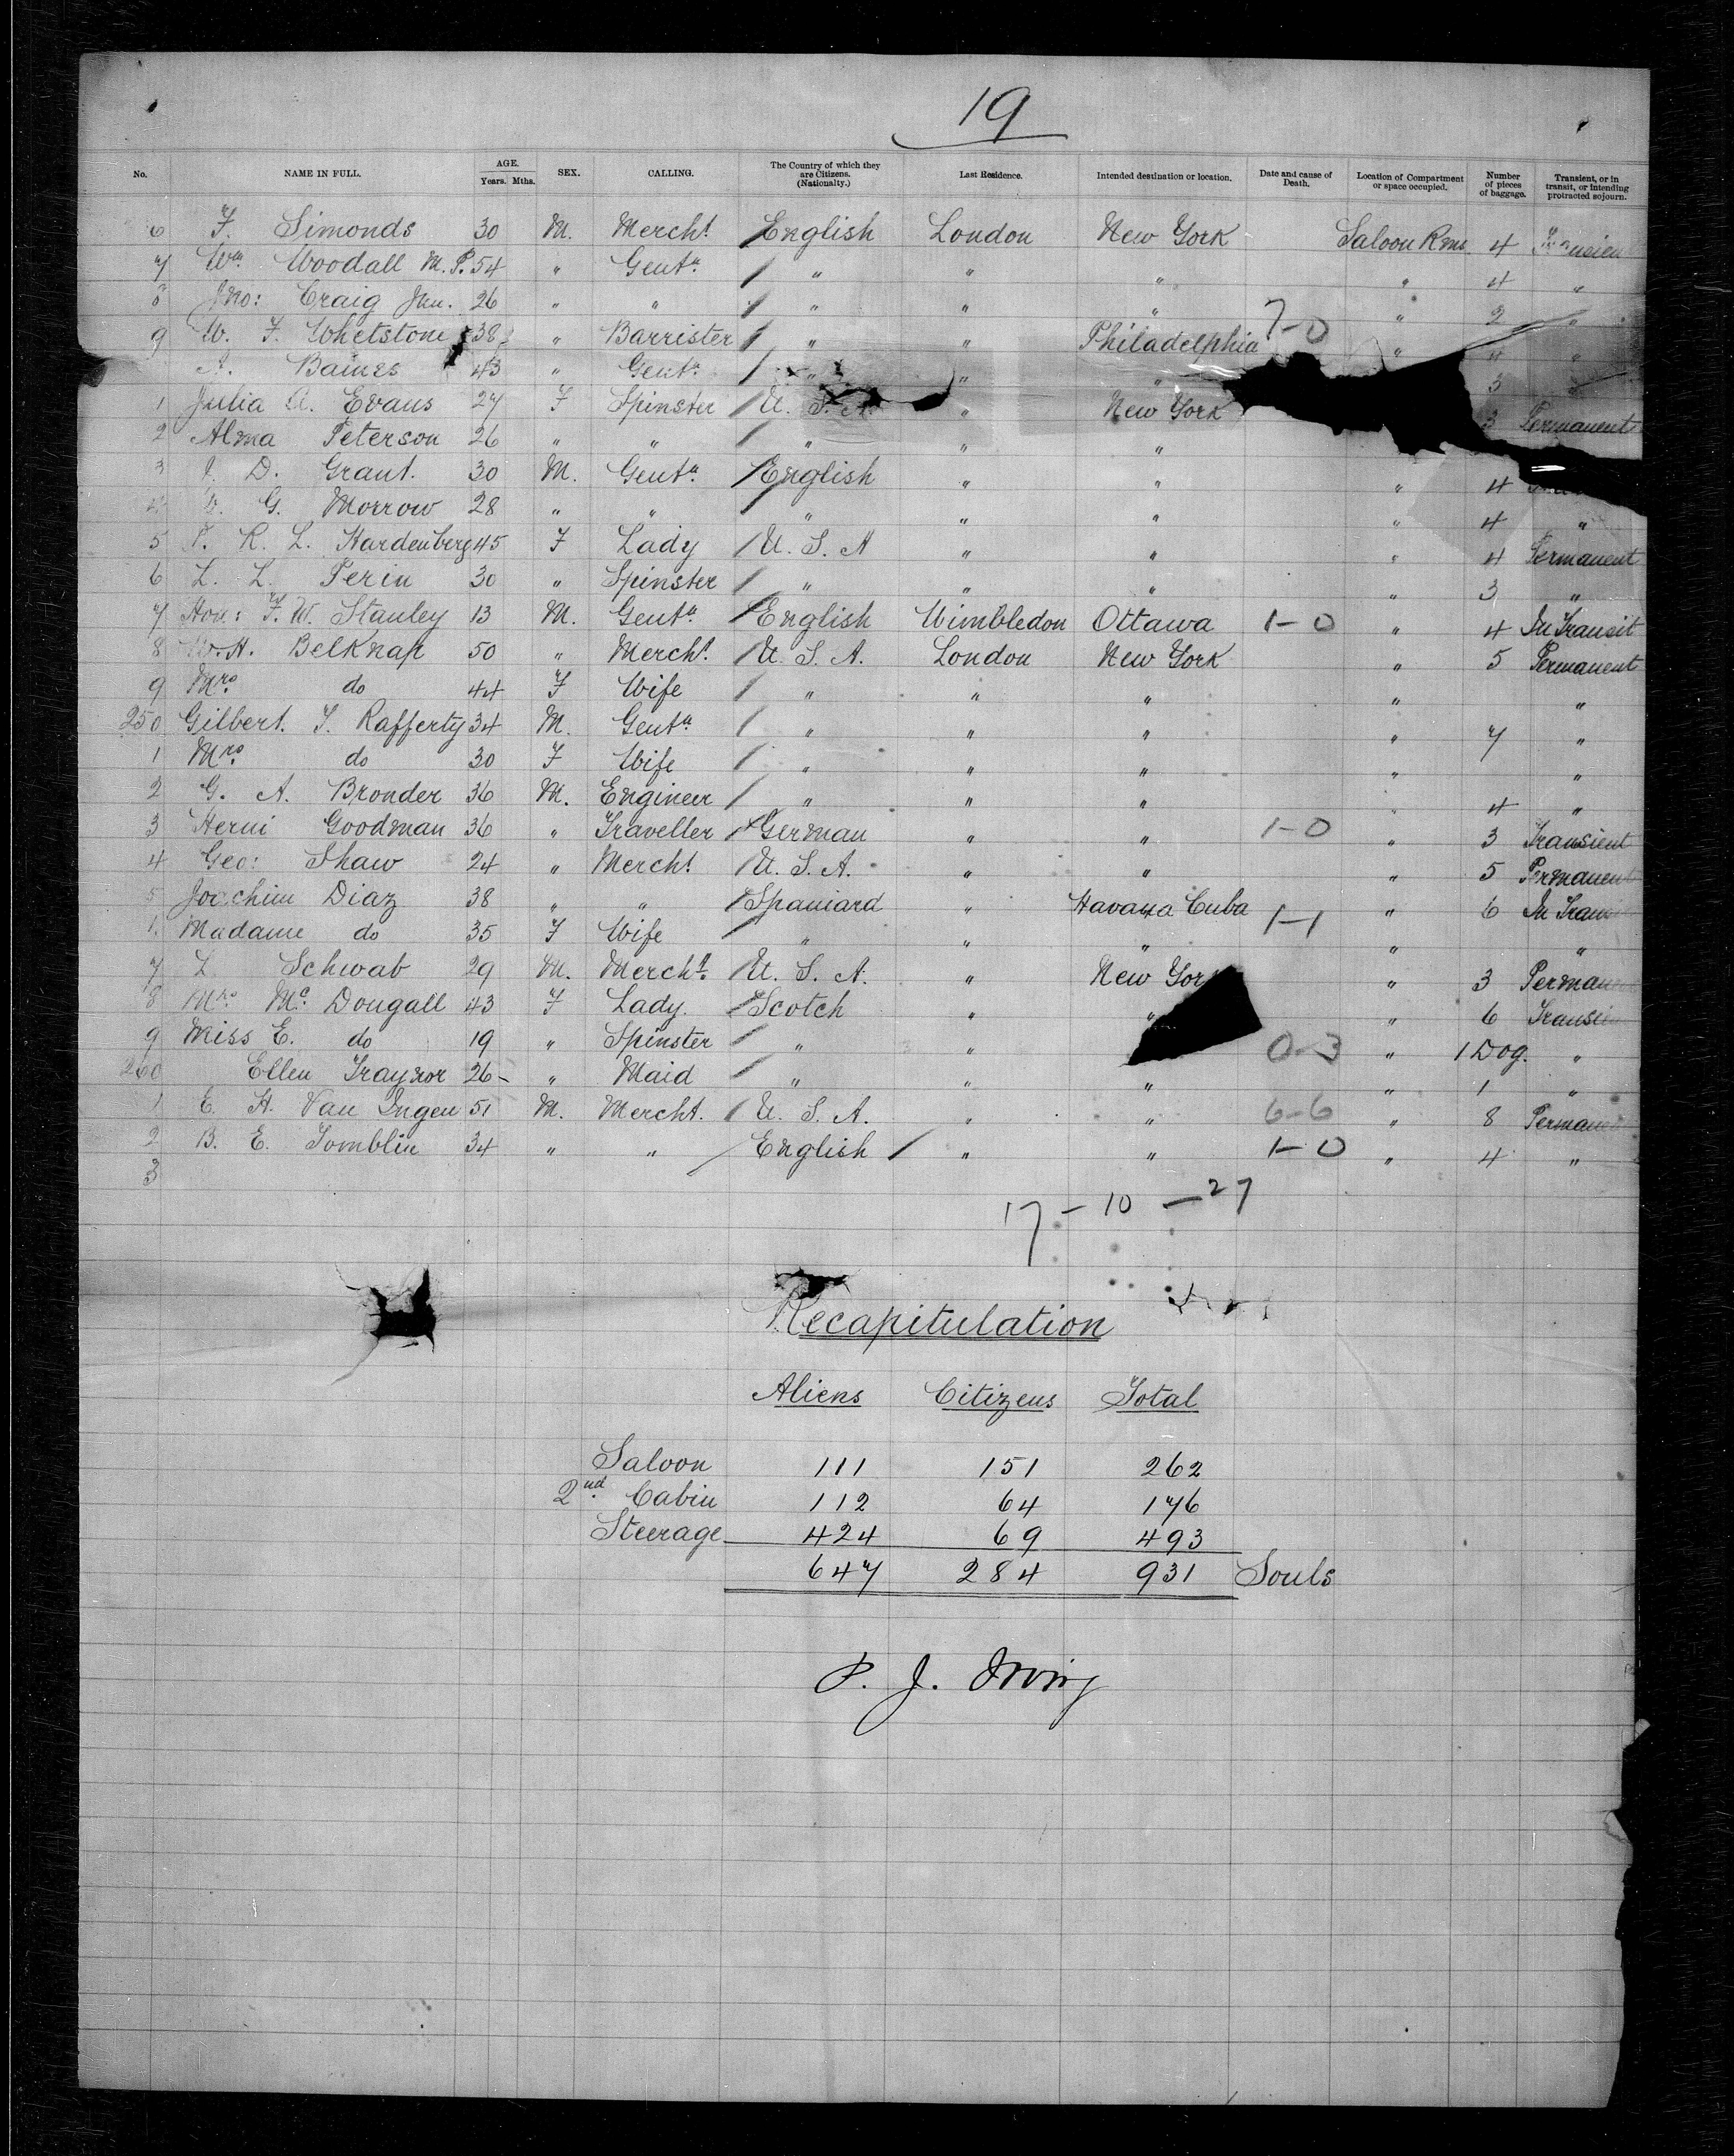 19
No. NAME IN FULL. AGE. Years. Mths. SEX. CALLING. The Country of which they are Citizens. (Nationalty.) Last Residence. Intended destination or location. Date and cause of Death. Location of Compartment or space occupied. Number of pieces of baggage. Transient, or in transit, or intending protracted sojourn.
6 F. Simonds 30 M. Mercht. English London New York Saloon Rms. 4
7 Wm. Woodall M.P. 54 " Gentn. " " " " 4 "
8 Jno: Craig Jnr. 26 " " " " " " 2 "
9 W. F. Whetstone 38 " Barrister " " Philadelphia 7-0 " 4 "
A. Baines 43 " Gentn. " " " 3 "
1 Julia A. Evans 27 F Spinster U. S. A. " New York 3 Permanent
2 Alma Peterson 26 " " " " "
3 J. D. Grant. 30 M. Gentn. English " " " 4
4 G. Morrow 28 " " " " " " 4 "
5 P. R. L. Hardenberg 45 F Lady U. S. A " " " 4 Permanent
6 L. L. Perin 30 " Spinster " " " " 3 "
7 Hon: F. W. Stanley 13 M. Gentn. English Wimbledon Ottawa 1-0 " 4 In Transit
8 W. H. Belknap 50 " Mercht. U. S. A. London New York " 5 Permanent
9 Mrs. do 44 F Wife " " " " "
250 Gilbert. T. Rafferty 34 M. Gentn. " " " " 7 "
1 Mrs. do 30 F Wife " " " " "
2 G. A. Bronder 36 M. Engineer " " " " 4 "
3 Henri Goodman 36 " Traveller German " " 1-0 " 3 Transient
4 Geo: Shaw 24 " Mercht. U. S. A. " " " 5 Permanent
5 Joachim Diaz 38 " " Spaniard " Havana Cuba 1-1 " 6 In Transit
Madame do 35 F Wife " " " " "
7 L. Schwab 29 M. Mercht. U. S. A. " New York " 3 Permanent
8 Mrs. Mc Dougall 43 F Lady. Scotch " " " 6 Transient
9 Miss E. do 19 " Spinster " " 0-3 " 1 Dog. "
260 Ellen Traynor 26 " Maid " " " " 1 "
1 E. H. Van Ingen 51 M. Mercht. U. S. A. " " 6-6 " 8 Permanent
2 B. E. Tomblin 34 " " English " " 1-0 " 4 "
3
17 - 10 - 27
Recapitulation
Aliens Citizens Total
Saloon 111 151 262
2nd. Cabin 112 64 176
Steerage 424 69 493
647 284 931 Souls
P. J. Irving